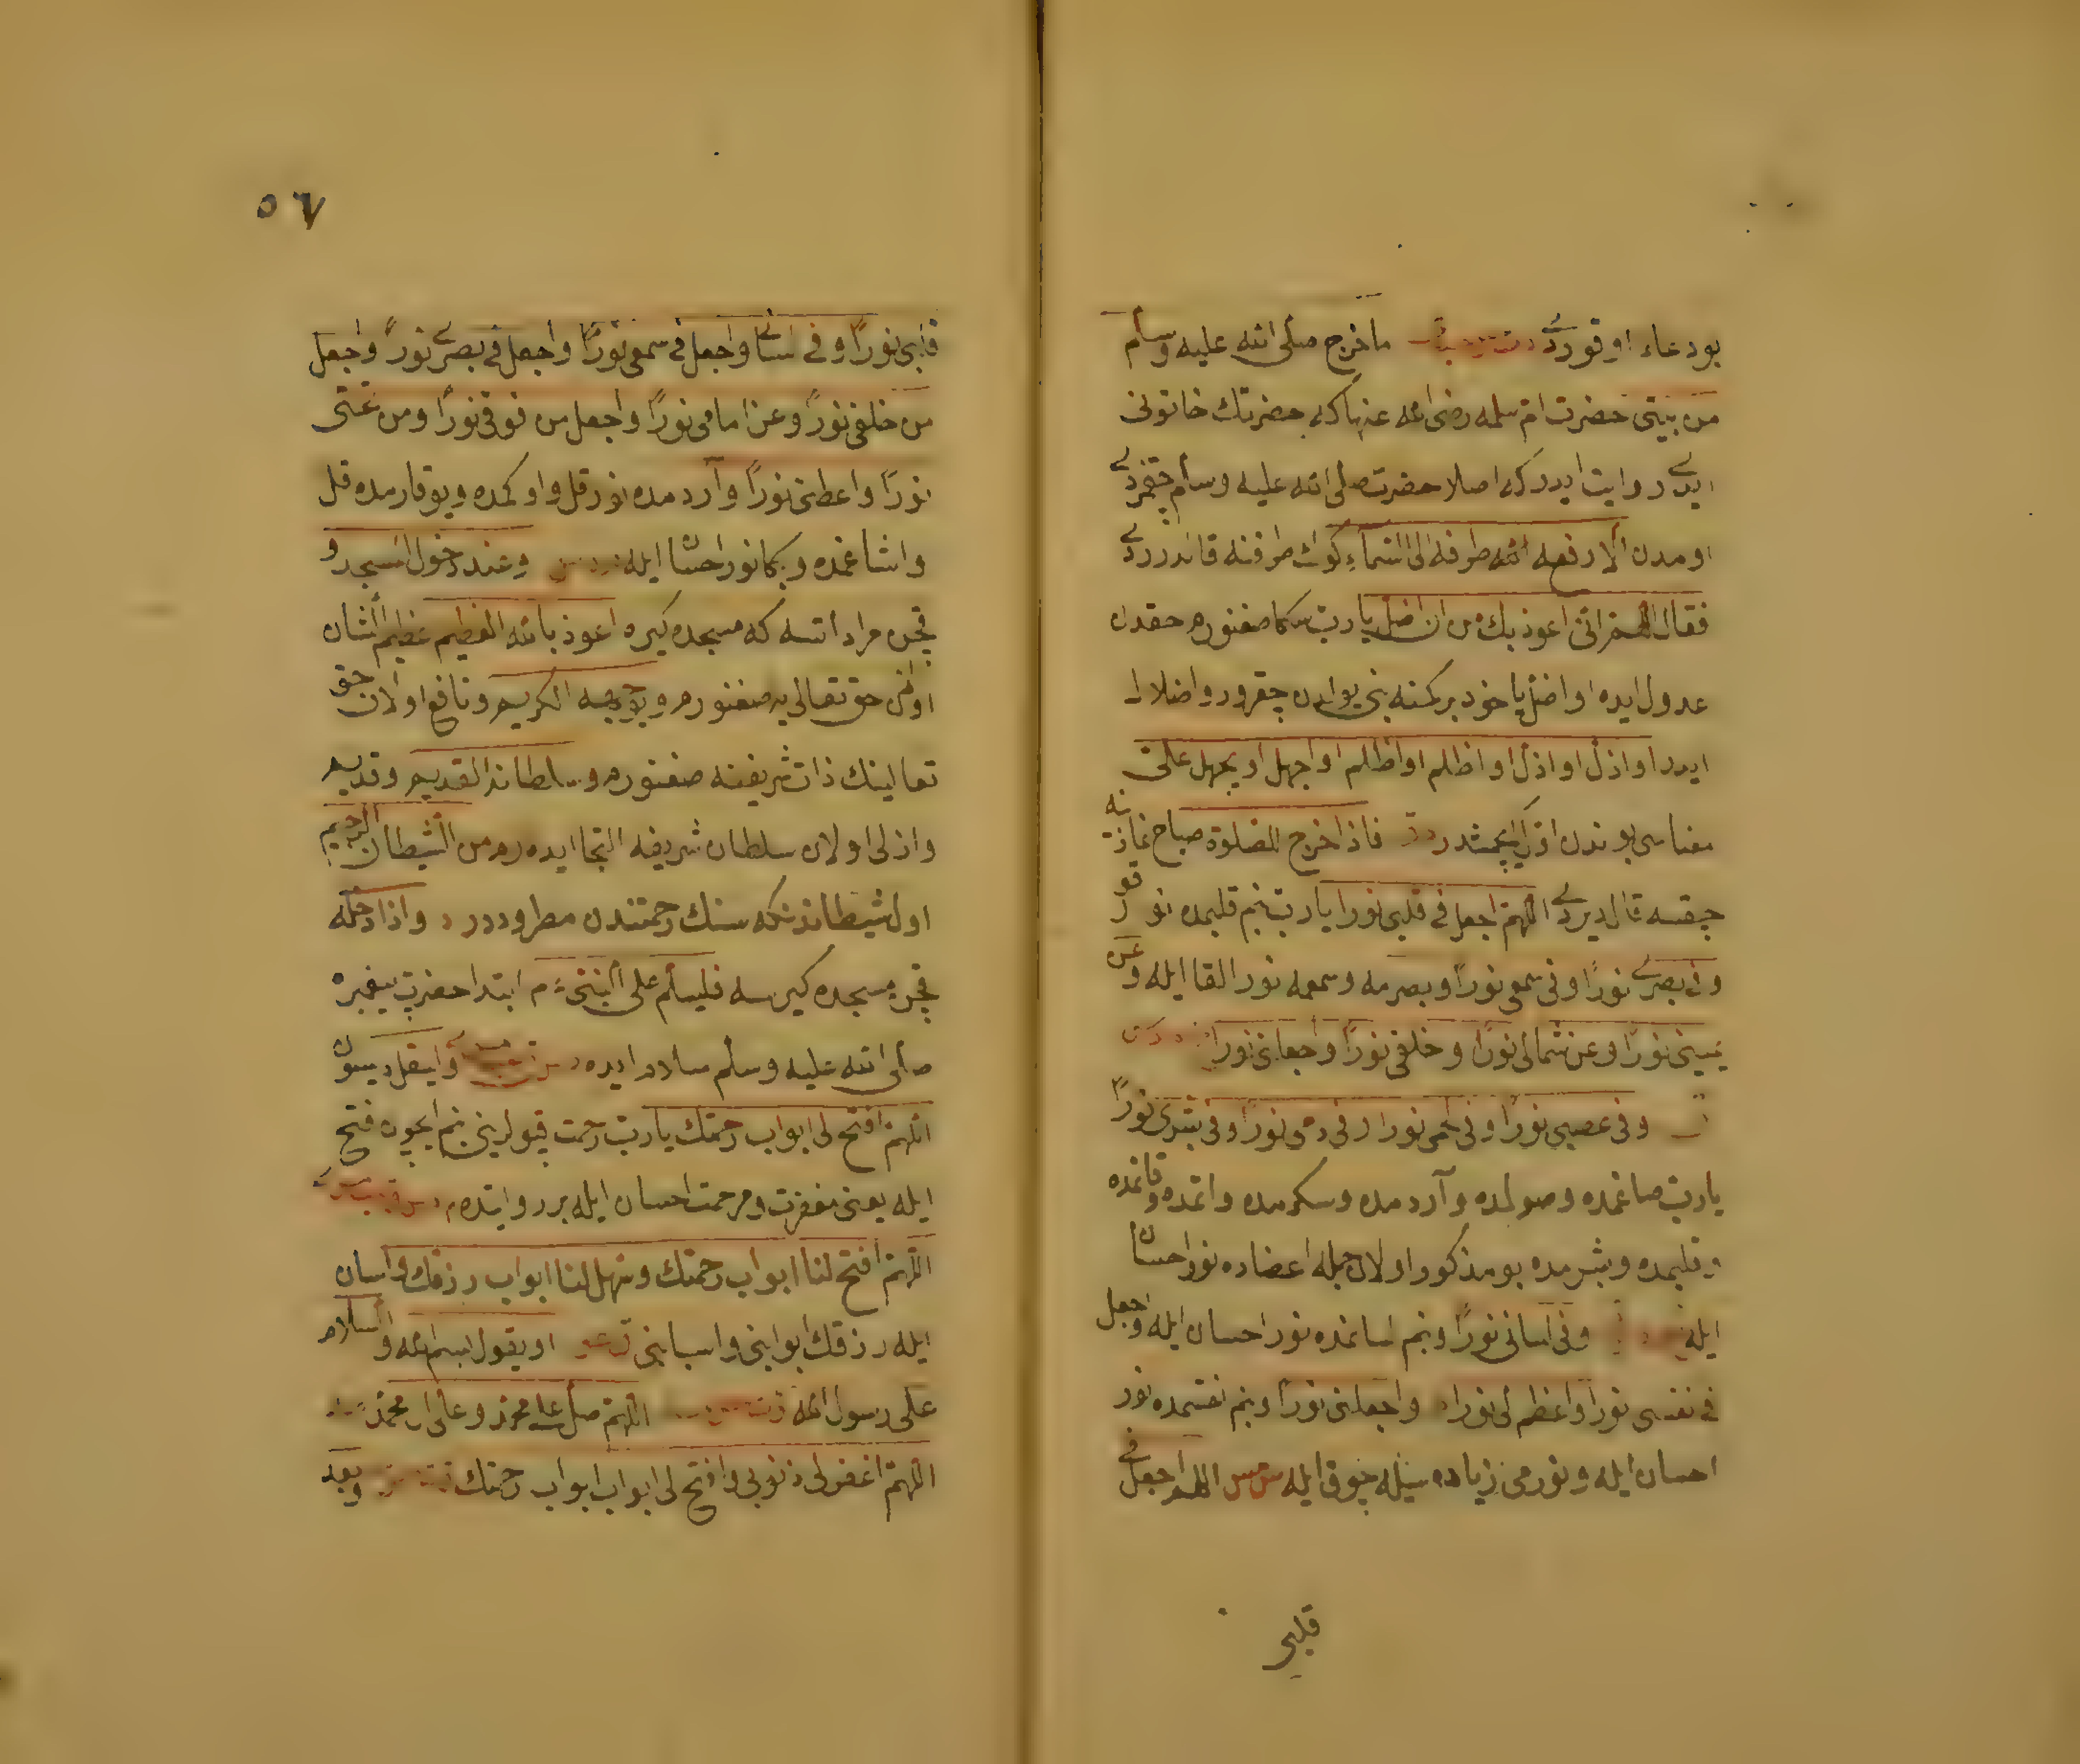 بو دعاء اوقوردى ما خرج صلى الله عليه وسلم
من بيتى حضرت ام سلمه رضى الله عنها كه حضرتك خاتونى
ايدى روايت ايدر كه اصلا حضرت صلى الله عليه وسلم چقمزدى
اومدن الا رفع الله طرفه الى السماء كوك طرفنه قالدرردى
فقال اللهم انى اعوذ بك من ان اضل يا رب سكا صغنورم حقدن
عدول ايدم او اضل ياخود بر كمسنه بنى يولدن چقرور و اضلال
ايدر او اذل او اذل او اظلم او اظلم او اجهل او يجهل على
معناسى بوندن اول كچمشدر فاذا خرج للصلوة صباح نمازنه
چقسه قال ديردى اللهم اجعل فى قلبى نورا يا رب بنم قلبمده نور قو
وفى بصرى نورًا وفى سمعى نورًا وبصرمه وسمعمه نور القا ايله وعن
يمينى نورًا وعن شمالى نورًا وخلفى نورًا واجعل لى نورا
وفى عصبى نورًا وفى لحمى نورا وفى دمى نورًا وفى بشرى نورًا
يا رب صاغمده وصولمده وآردمده وسكرمده واتمده وقانمده
وقلبمده وبشرمده بو مذكور اولان جمله اعضاده نور احسان
ايله وفى لسانى نورًا وبنم لسانمده نور احسان ايله واجعل
فى نفسى نورًا واعظم لى نورا واجعلنى نورًا وبنم نفسمده نور
احسان ايله ونورمى زياده سيله چوق ايله س مس اللهم اجعل فى
قلبى
٥٦
قلبى نورًا وفى لسانى واجعل فى سمعى نورًا واجعل فى بصرى نورًا واجعل
من خلفى نورًا وعن امامى نورًا واجعل من فوقى نورًا ومن تحتى
نورًا واعطنى نورًا وآردمده نور قل واوكمده ويوقارمده قل
واشاغمده وبكا نور احسان ايله وعند دخول المسجد و
قچن مراد اتسه كه مسجده كيره اعوذ بالله العظيم عظيم الشان
اولان حق تعالى يه صغنورم وبوجهه الكريم ونافع اولان حق
تعالينك ذات شريفنه صغنورم وسلطانه القديم وقديم
وازلى اولان سلطان شريفه التجا ايده رم من الشيطان الرجيم
اول شيطاندنكه سنك رحمتندن مطروددر واذا دخله
قچن مسجده كيرسه فليسلم على النبى م ابتدا حضرت پيغمبره
صلى الله عليه وسلم سلام ايده وليقل ديسون
اللهم افتح لى ابواب رحمتك يا رب رحمت قپولرينى بنم ايچون فتح
ايله يعنى مغفرت ومرحمت احسان ايله بر روايتده
اللهم افتح لنا ابواب رحمتك وسهل لنا ابواب رزقك واسان
ايله رزقك ابوابنى واسبابنى او يقول بسم الله والسلام
على رسول الله اللهم صل على محمد وعلى ال محمد
اللهم اغفر لى ذنوبى وافتح لى ابواب ابواب رحمتك وبعد